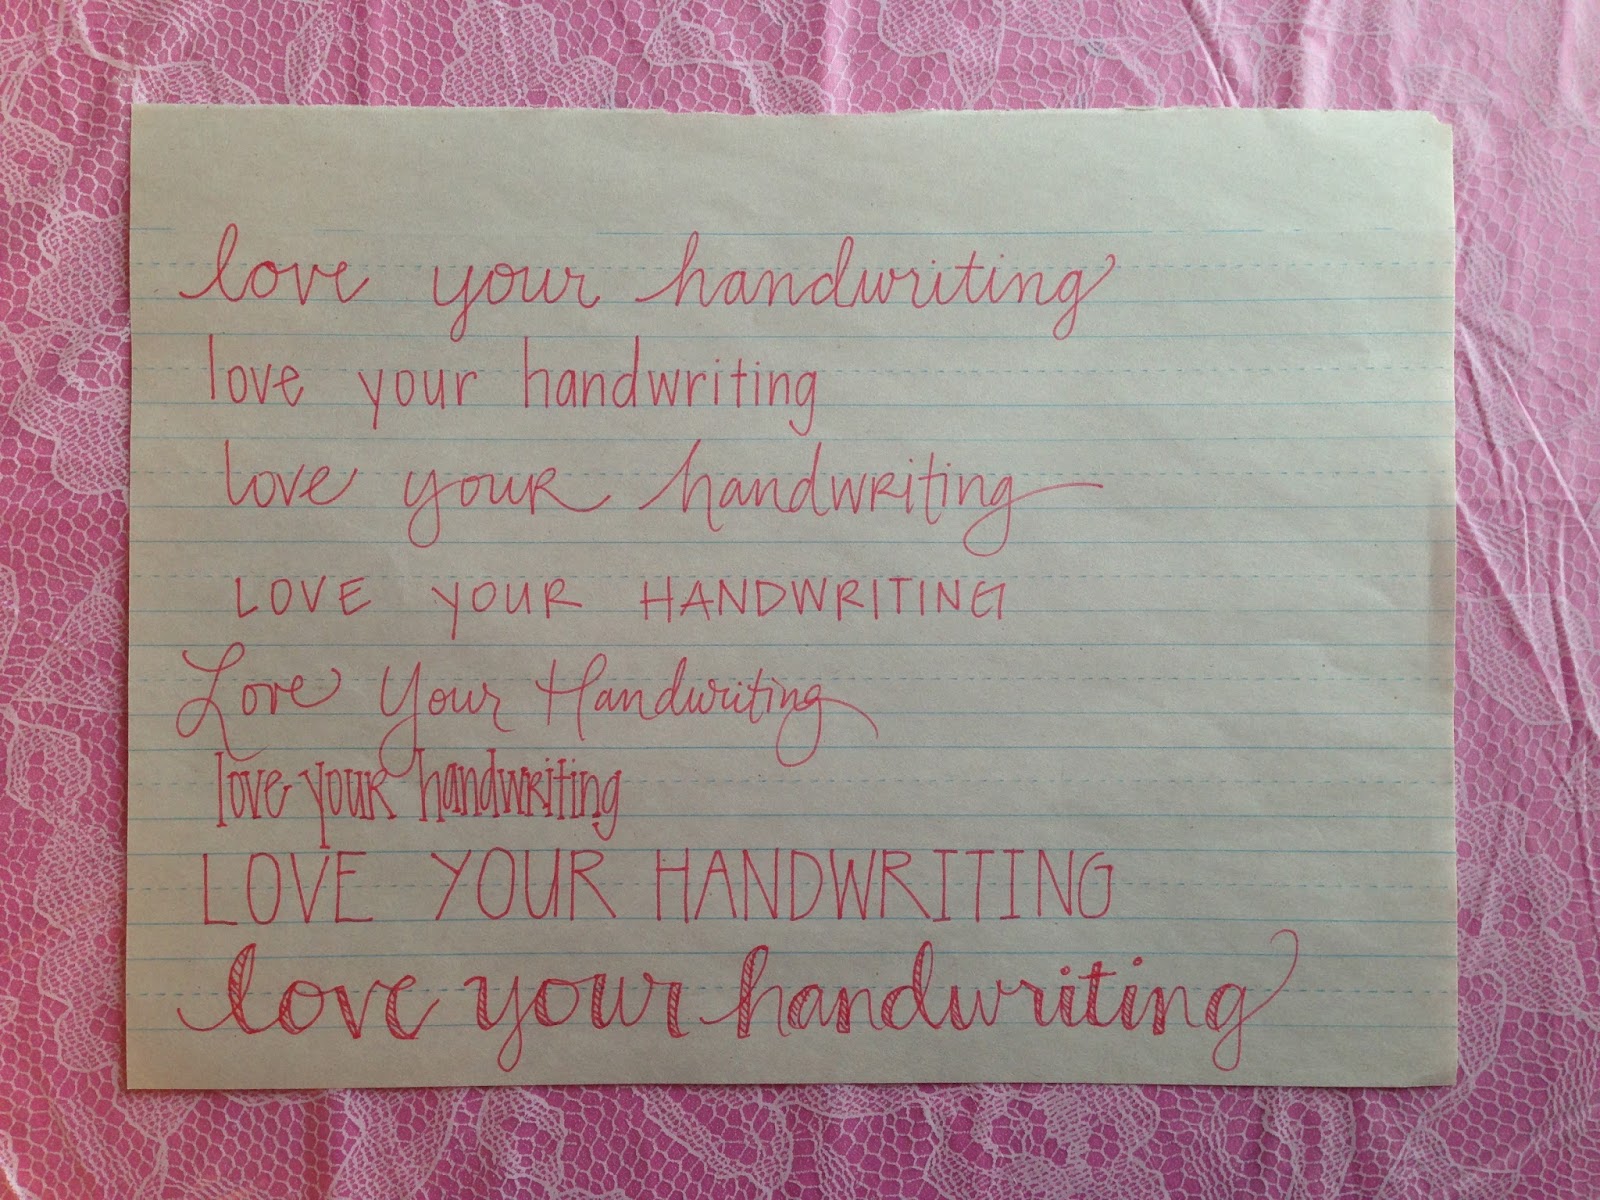 love your handwriting
love your handwriting
love youR handwRiting
LOVE YOUR HANDWRITING
Love Your Handwriting
love youR handwRiting
LOVE YOUR HANDWRITING
love your handwriting